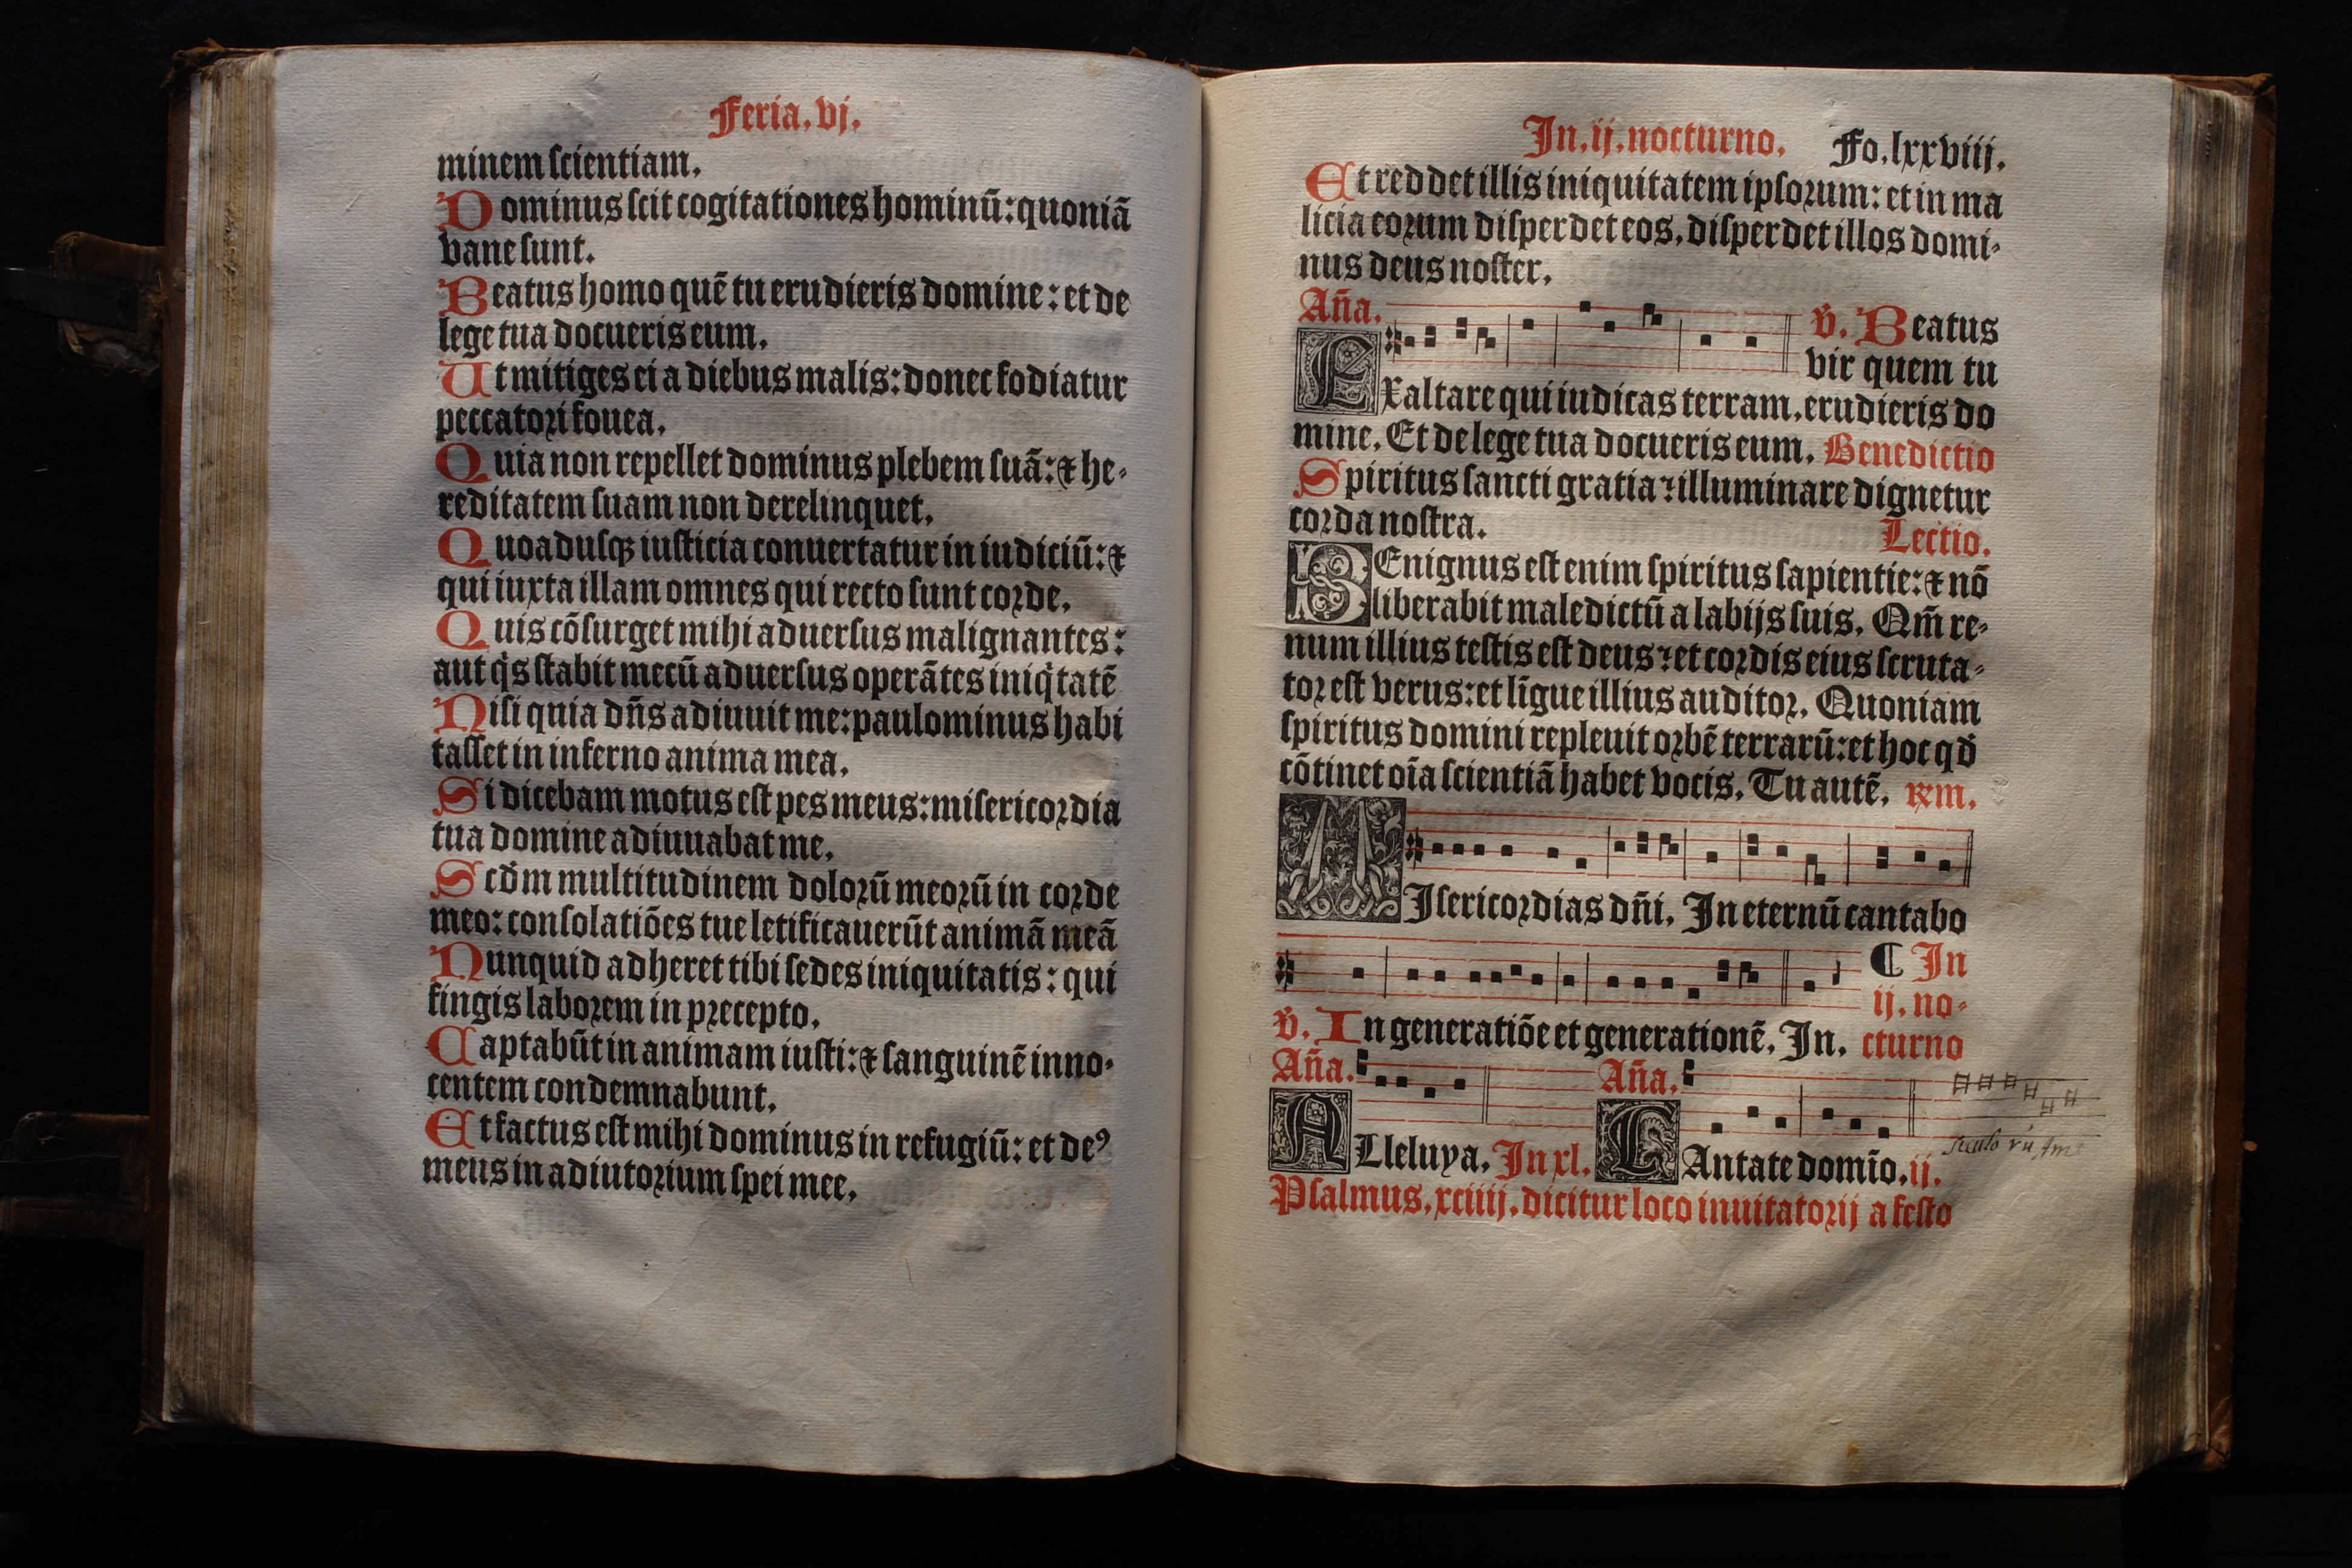 Feria. vj.
minem scientiam.
Dominus scit cogitationes hominū: quoniā
vane sunt.
Beatus homo quē tu erudieris domine: et de
lege tua docueris eum.
Ut mitiges ei a diebus malis: donec fodiatur
peccatori fouea.
Quia non repellet dominus plebem suā: ⁊ he-
reditatem suam non derelinquet.
Quoadusqꝫ iusticia conuertatur in iudiciū: ⁊
qui iuxta illam omnes qui recto sunt corde.
Quis cōsurget mihi aduersus malignantes:
aut q̇s stabit mecū aduersus operātes iniq̇tatē
Nisi quia dn̄s adiuuit me: paulominus habi
tasset in inferno anima mea.
Si dicebam motus est pes meus: misericordia
tua domine adiuuabat me.
Scd̄m multitudinem dolorū meorū in corde
meo: consolatiōes tue letificauerūt animā meā
Nunquid adheret tibi sedes iniquitatis: qui
fingis laborem in precepto.
Captabūt in animam iusti: ⁊ sanguinē inno-
centem condemnabunt.
Et factus est mihi dominus in refugiū: et deꝰ
meus in adiutorium spei mee.
In. ij. nocturno. Fo. lxxviii.
Et reddet illis iniquitatem ipsorum: et in ma
licia eorum disperdet eos, disperdet illos domi-
nus deus noster.
Aña. v̄. Beatus
vir quem tu
Exaltare qui iudicas terram. erudieris do
mine. Et de lege tua docueris eum. Benedictio
Spiritus sancti gratia: illuminare dignetur
corda nostra. Lectio.
BEnignus est enim spiritus sapientie: ⁊ nō
liberabit maledictū a labijs suis. Qm̄ re-
num illius testis est deus: et cordis eius scruta-
tor est verus: et līgue illius auditor. Quoniam
spiritus domini repleuit orbē terrarū: et hoc qd̄
cōtinet oīa scientiā habet vocis. Tu autē. ℞m.
MIsericordias dn̄i. In eternū cantabo
¶ In
ij. no-
v̄. In generatiōe et generationē. In. cturno
Aña. Aña.
ALleluya. In xl. CAntate domīo. ij.
seculo rū Ame
Psalmus. xciiij. dicitur loco inuitatorij a festo